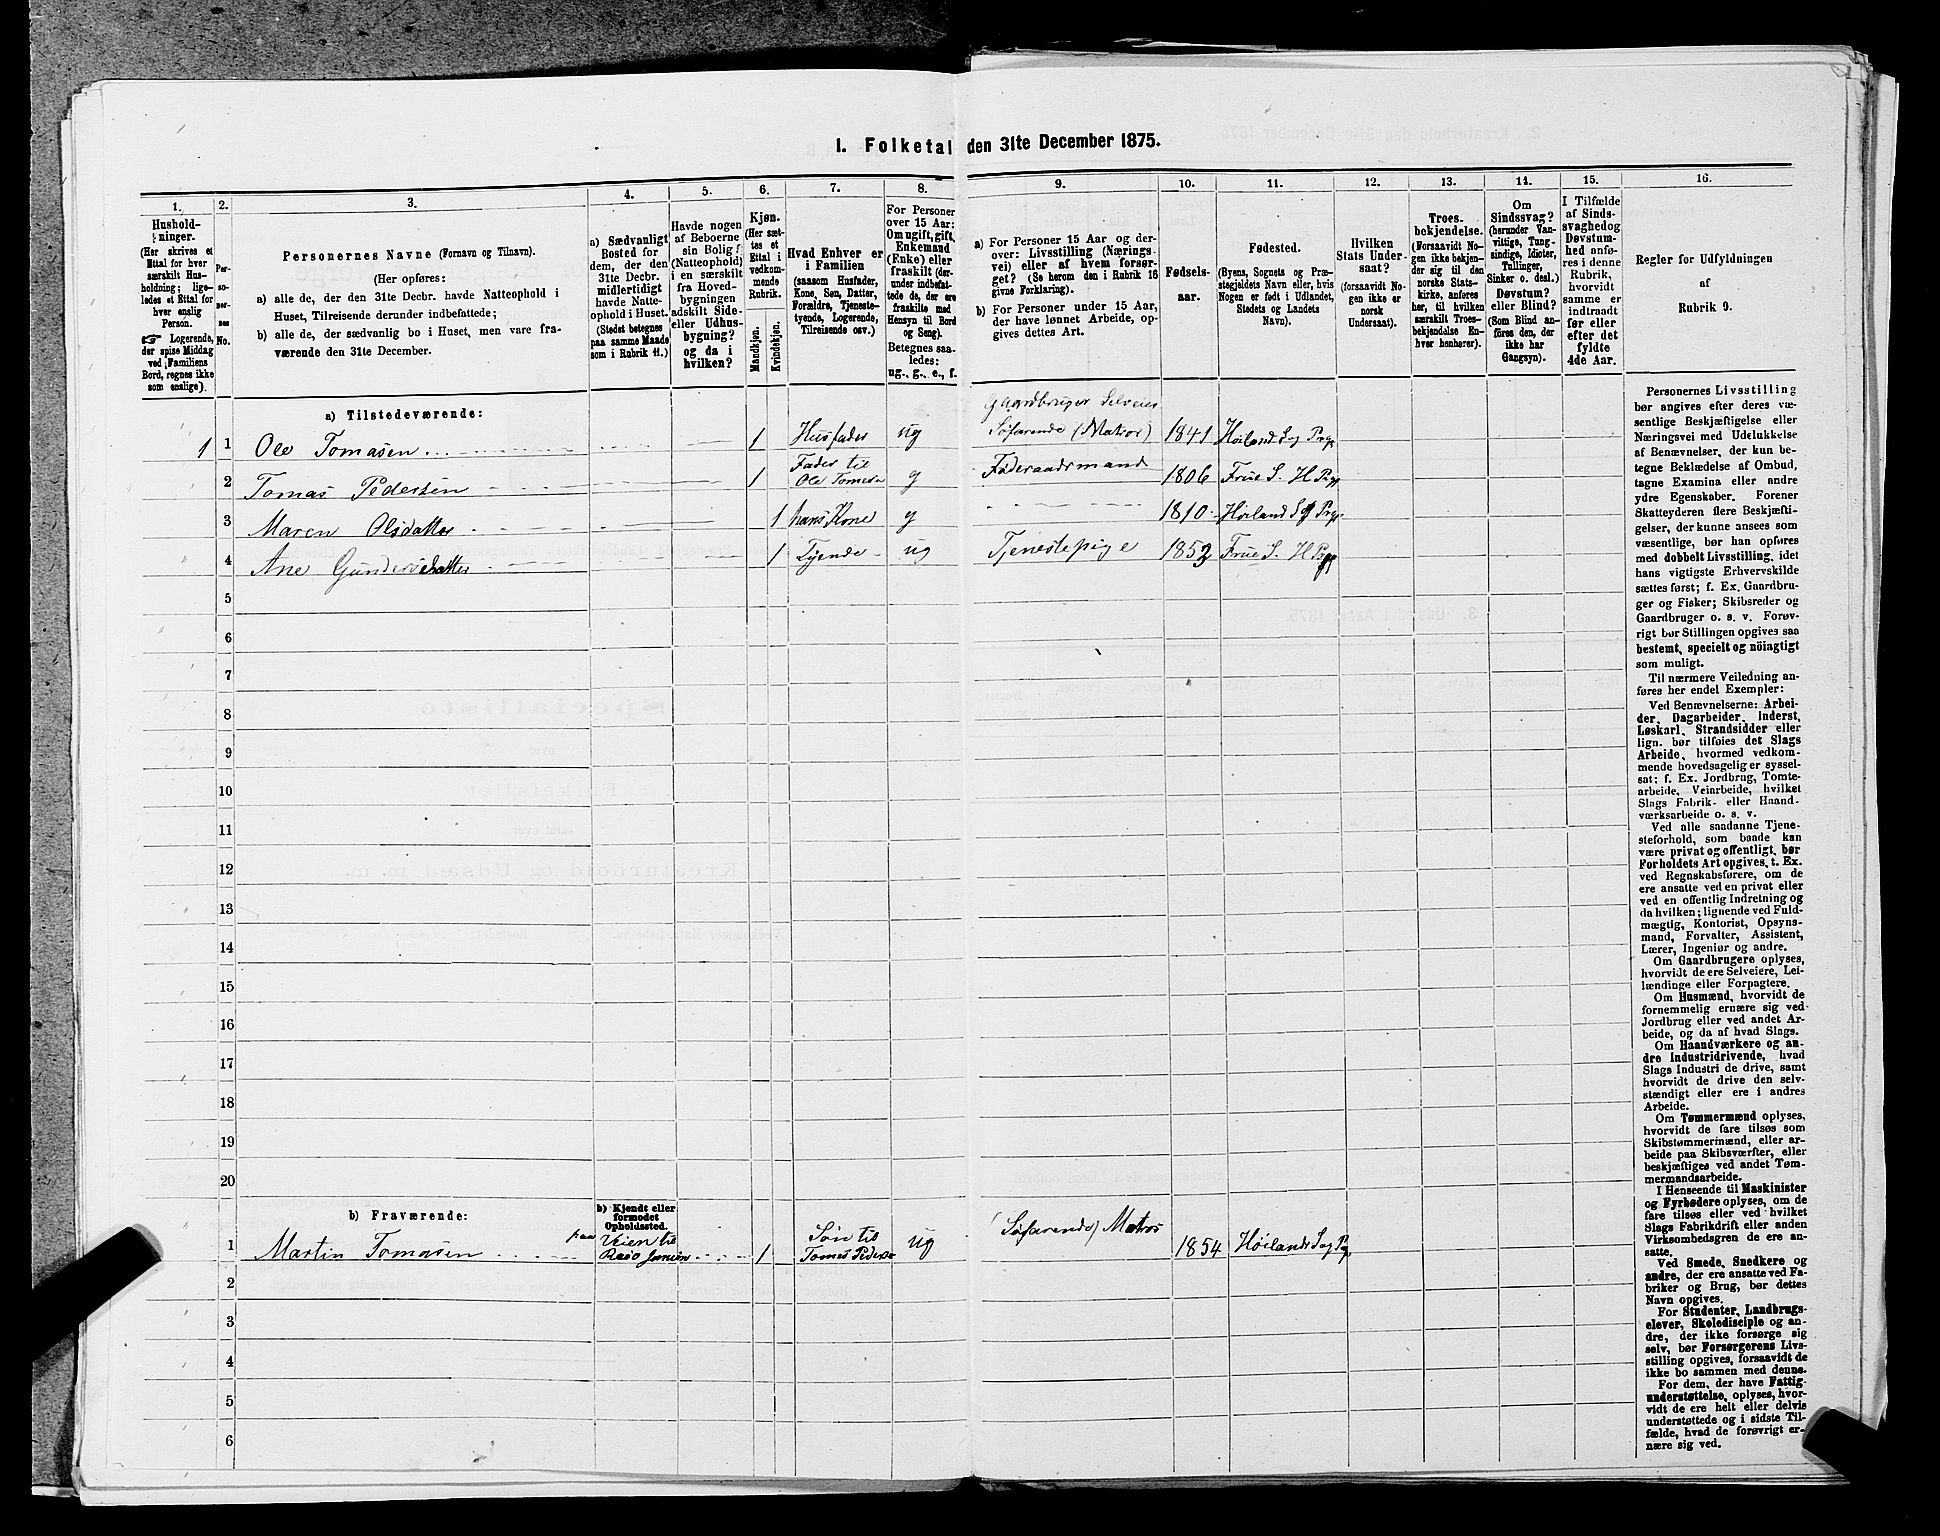 1. Folketal den 31te December 1875.
1.
Hushold-
ninger.
(Her skrives et
Ettal for hver
særskilt Hus-
holdning; lige-
ledes et Ettal for
hver enslig
Person.
☞ Logerende,
der spise Middag
ved Familiens
Bord, regnes ikke
som enslige).
2.
Per-
so-
ner-
nes
No.
3.
Personernes Navne (Fornavn og Tilnavn).
(Her opføres:
a) alle de, der den 31te Decbr. havde Natteophold i
Huset, Tilreisende derunder indbefattede;
b) alle de, der sædvanlig bo i Huset, men vare fra-
værende den 31te December.
4.
a) Sædvanligt
Bosted for
dem, der den
31te Decbr.
midlertidigt
havde Natte-
ophold i Huset.
(Stedet betegnes
paa samme Maade
som i Rubrik 11.)
5.
Havde nogen
af Beboerne
sin Bolig
(Natteophold)
i en særskilt
fra Hoved-
bygningen
adskilt Side-
eller Udhus-
bygning?
og da i
hvilken?
6.
Kjøn.
(Her sæt-
tes et
Ettal i
vedkom-
mende
Rubrik.
Mandkjøn.
Kvindekjøn.
7.
Hvad Enhver er
i Familien
(saasom Husfader,
Kone, Søn, Datter,
Forældre, Tjeneste-
tyende, Logerende,
Tilreisende osv.)
8.
For Personer
over 15 Aar:
Om ugift, gift,
Enkemand
(Enke) eller
fraskilt (der-
under indbefat-
tede de, der ere
fraskilte med
Hensyn til Bord
og Seng).
Betegnes saa-
ledes:
ug., g., e., f.
9.
a) For Personer 15 Aar og der-
over: Livsstilling (Nærings-
vei) eller af hvem forsør-
get? (Se herom den i Rubrik 16
givne Forklaring).
b) For Personer under 15 Aar,
der have lønnet Arbeide, op-
gives dettes Art.
10.
Fødsels-
aar.
11.
Fødested.
(Byens, Sognets og Præ-
stegjeldets Navn eller, hvis
Nogen er født i Udlandet,
Stedets og Landets
Navn).
12.
Hvilken
Stats Under-
saat?
(forsaavidt No-
gen ikke er
norsk
Undersaat).
13.
Troes-
bekjendelse.
(Forsaavidt No-
gen ikke bekjen-
der sig til den
norske Stats-
kirke, anføres
her, til hvilken
særskilt Troes-
bekjendelse En-
hver henhører).
14.
Om
Sindssvag?
(herunder Van-
vittige, Tung-
sindige, Idioter,
Tullinger,
Sinker o. desl.)
Døvstum?
eller Blind?
(Som Blind an-
føres den, der
ikke har
Gangsyn).
15.
I Tilfælde
af Sinds-
svaghed og
Døvstum-
hed anfø-
res i denne
Rubrik,
hvorvidt
samme er
indtraadt
før eller
efter det
fyldte
4de Aar.
16.
Regler for Udfyldningen
af
Rubrik 9.
a) Tilstedeværende:
Gaardbruger Selveier
1 1 Ole Tomasen 1 Husfader ug Søfarende (Matros) 1841 Høiland Sg Prgj
2 Tomas Pedersen 1 Fader til Ole Tomasn g Føderaadsmand 1806 Frue S. H Prgj
3 Maren Olsdatter 1 hans Kone g 1810 Høiland Sg Prgj
4 Ane Gundersdatter 1 Tjende ug Tjenestepige 1852 Frue S. H Prgj
5
6
7
8
9
10
11
12
13
14
15
16
17
18
19
20
b) Fraværende:
b) Kjendt eller
formodet
Opholdssted.
1 Martin Tomasen paa Veien til 1 Søn til Tomas Peders ug (Søfarende) Matros 1854 Høilands Sg Pg
2
3
4
5
6
Personernes Livsstilling
bør angives efter deres væ-
sentlige Beskjæftigelse eller
Næringsvei med Udelukkelse
af Benævnelser, der kun be-
tegne Beklædelse af Ombud,
tagne Examina eller andre
ydre Egenskaber. Forener
Skatteyderen flere Beskjæfti-
gelser, der kunne ansees som
væsentlige, bør han opføres
med dobbelt Livsstilling, idet
hans vigtigste Erhvervskilde
sættes først; f. Ex. Gaardbru-
ger og Fisker; Skibsreder og
Gaardbruger o. s. v. Forøv-
rigt bør Stillingen opgives saa
bestemt, specielt og nöiagtigt
som muligt.
Til nærmere Veiledning an-
føres her endel Exempler:
Ved Benævnelserne: Arbei-
der, Dagarbeider, Inderst,
Løskarl, Strandsidder eller
lign. bør tilføies det Slags
Arbeide, hvormed vedkom-
mende hovedsagelig er syssel-
sat; f. Ex. Jordbrug, Tomte-
arbeide, Veiarbeide, hvilket
Slags Fabrik- eller Haand-
værksarbeide o. s. v.
Ved alle saadanne Tjene-
steforhold, som baade kan
være privat og offentligt, bør
Forholdets Art opgives, t. Ex.
ved Regnskabsførere, om de
ere ansatte ved en privat eller
ved en offentlig Indretning og
da hvilken; lignende ved Fuld-
mægtig, Kontorist, Opsyns-
mand, Forvalter, Assistent,
Lærer, Ingeniør og andre.
Om Gaardbrugere oplyses,
hvorvidt de ere Selveiere, Lei-
lændinge eller Forpagtere.
Om Husmænd, hvorvidt de
fornemmelig ernære sig ved
Jordbrug eller ved andet Ar-
beide, og da af hvad Slags.
Om Haandværkere og an-
dre Industridrivende, hvad
Slags Industri de drive, samt
hvorvidt de drive den selv-
stændigt eller ere i andres
Arbeide.
Om Tømmermænd oplyses,
hvorvidt de fare tilsøs som
Skibstømmermænd, eller ar-
beide paa Skibsværfter, eller
beskjæftiges ved andet Tøm-
mermandsarbeide.
I Henseende til Maskinister
og Fyrbødere oplyses, om de
fare tilsøs eller ved hvilket
Slags Fabrikdrift eller anden
Virksomhedsgren de ere an-
satte.
Ved Smede, Snedkere og
andre, der ere ansatte ved Fa-
briker og Brug, bør dettes
Navn opgives.
For Studenter, Landbrugs-
elever, Skoledisciple og an-
dre, der ikke forsørge sig
selv, bør Forsørgerens Livs-
stilling opgives, forsaavidt de
ikke bo sammen med denne.
For dem, der have Fattig-
understøttelse, oplyses, hvor-
vidt de ere helt eller delvis
understøttede og i sidste Til-
fælde, hvad de forøvrigt er-
nære sig ved.